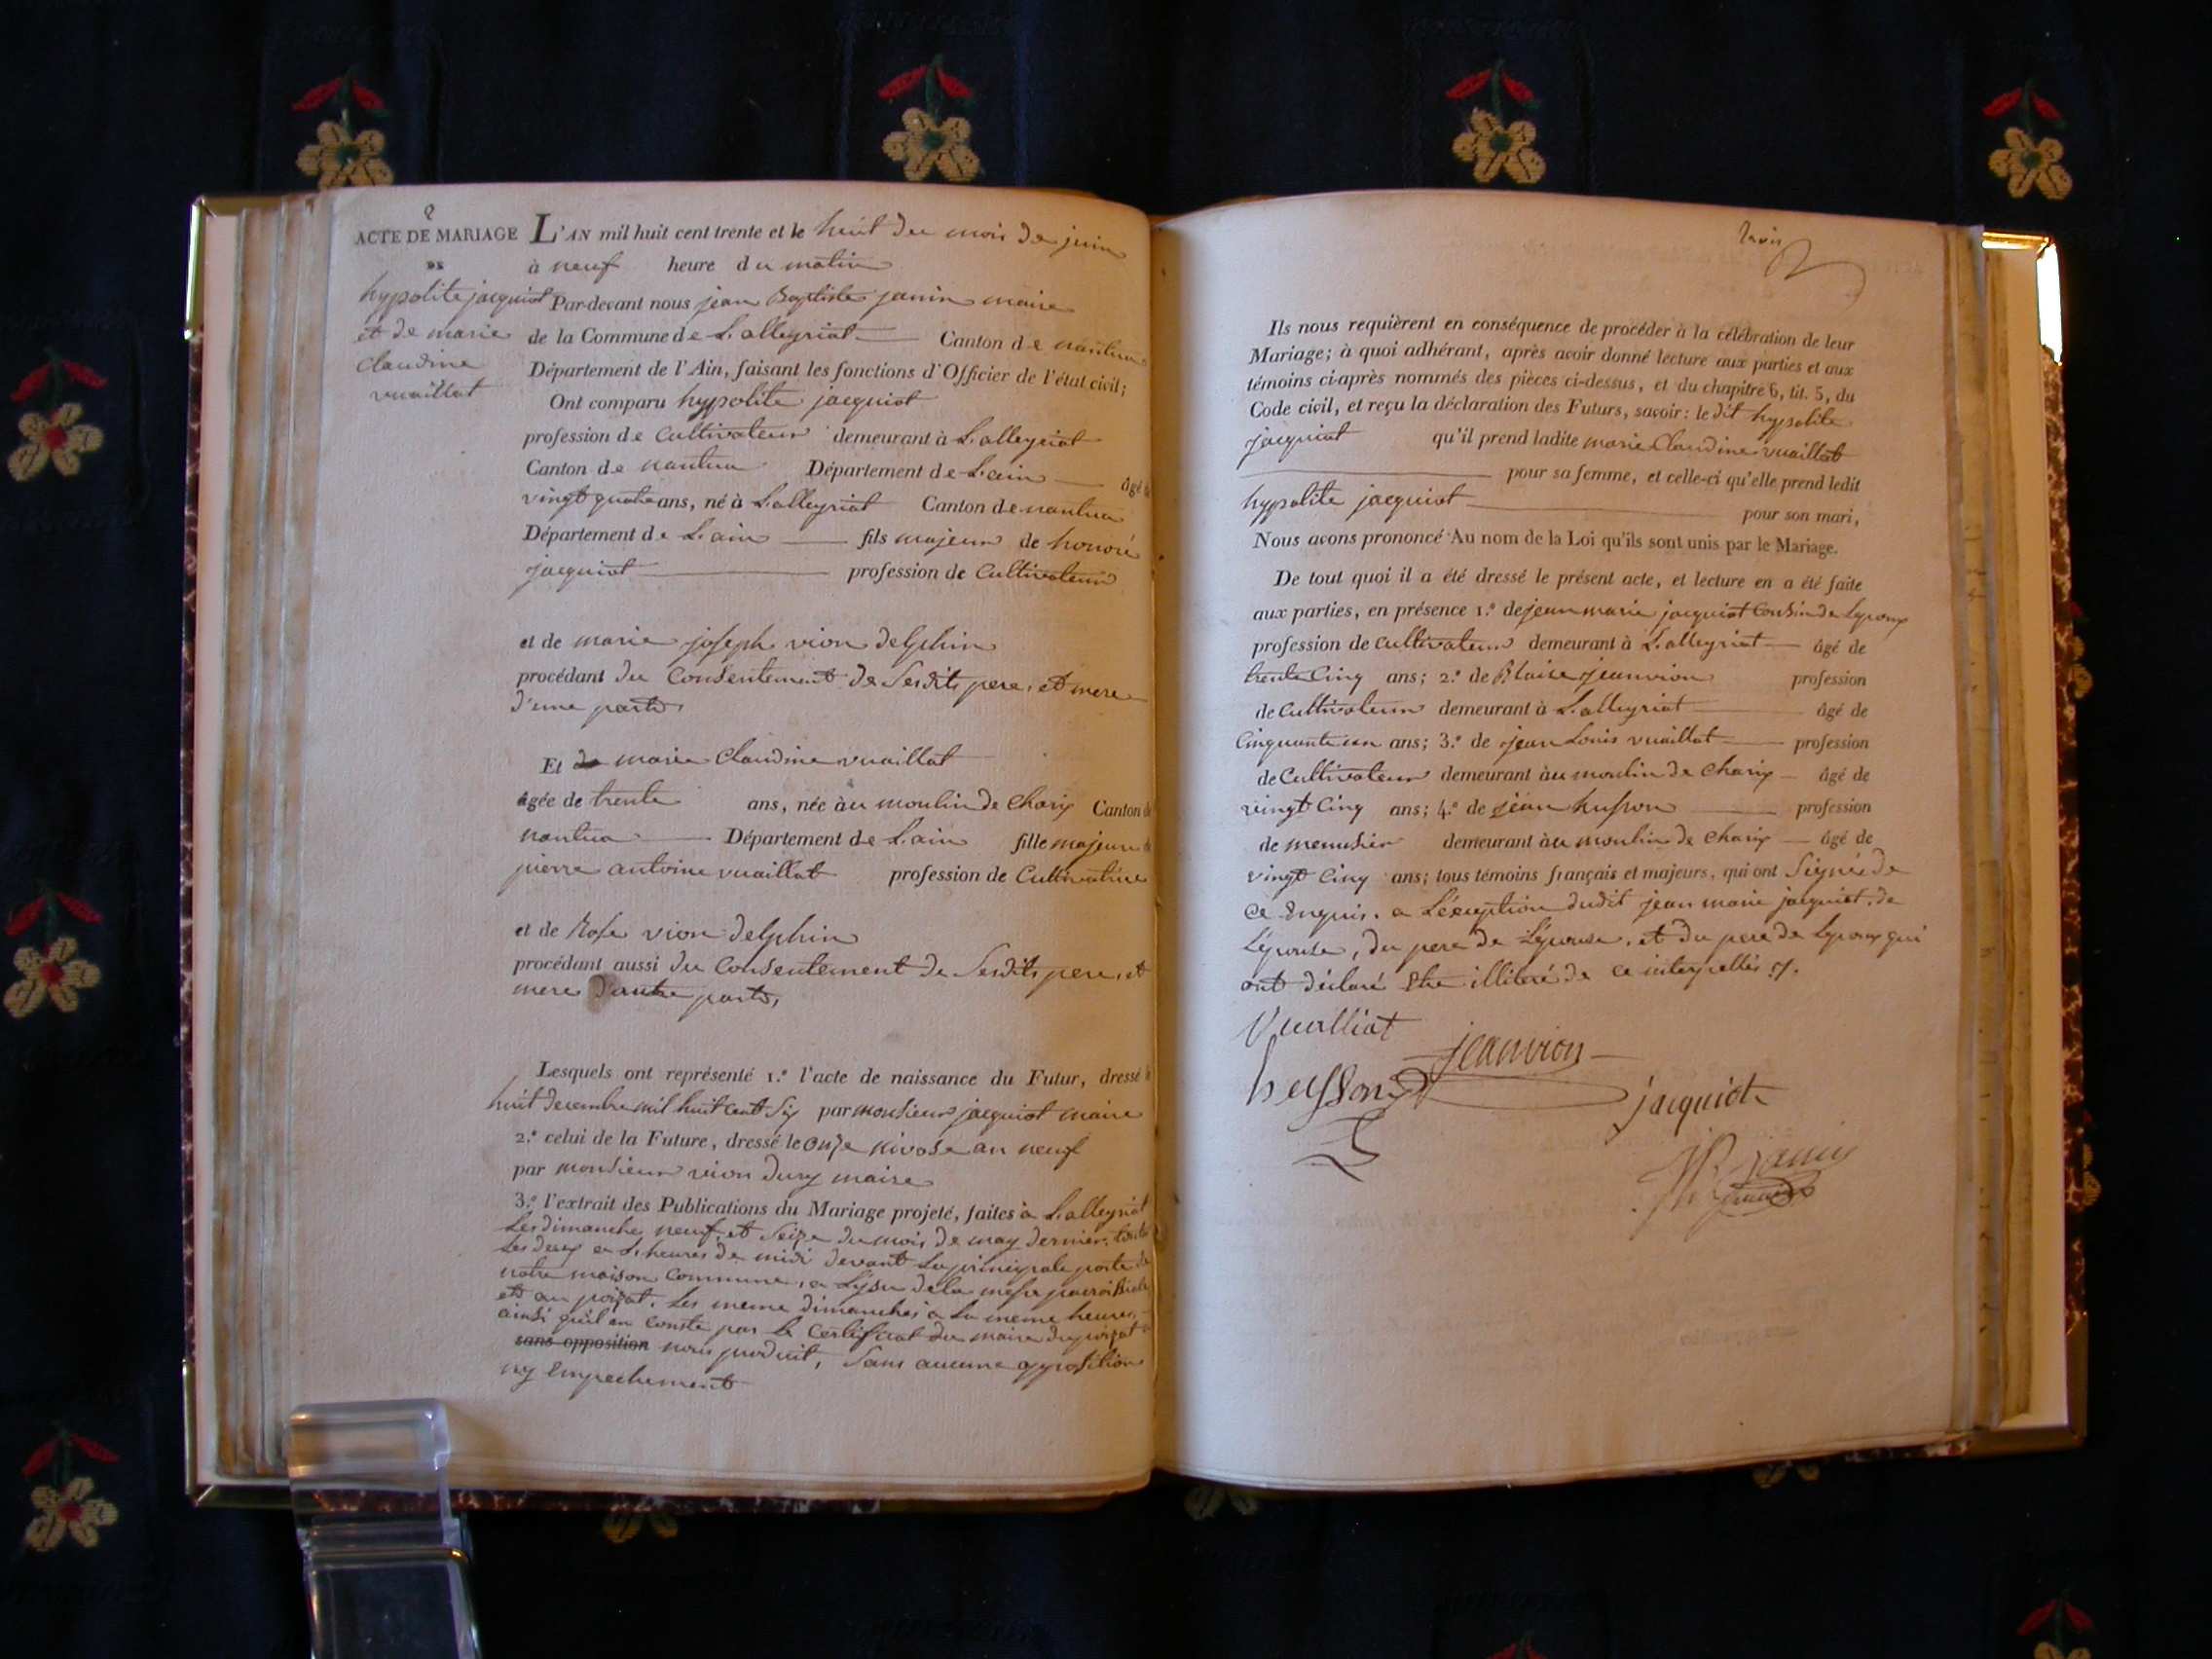 2
ACTE DE MARIAGE
DE
hypolite jacquiot
et de marie
Claudine
vuaillat
L'AN mil huit cent trente et le huit du mois de juin
à neuf heure du matin
Par-devant nous jean Baptiste janin maire
de la Commune de L'alleyriat Canton de nantua
Département de l'Ain, faisant les fonctions d'Officier de l'état civil;
Ont comparu hyppolite jacquiot
profession de Cultivateur demeurant à L'alleyriat
Canton de nantua Département de L'ain âgé de
vingt quatre ans, né à L'alleyriat Canton de nantua
Département de L'ain fils majeur de honoré
jacquiot profession de Cultivateur
et de marie joseph vion delphin
procédant du Consentement de Sesdits pere, et mere
d'une part,
Et de marie Claudine vuaillat
âgée de trente ans, née àu moulin de Charix Canton de
nantua Département de L'ain fille majeure de
pierre antoine vuaillat profession de Cultivatrice
et de Rose vion delphin
procédant aussi du Consentement de Sesdits pere, et
mere d'autre part,
Lesquels ont représenté 1.º l'acte de naissance du Futur, dressé le
huit decembre mil huit cent Six par monsieur jacquiot maire
2.º celui de la Future, dressé le onze nivose an neuf
par monsieur vion dury maire
3.º l'extrait des Publications du Mariage projeté, faites à L'alleyriat
Les dimanche neuf, et Seize du mois de may dernier, toute
Les deux a heures de midi devant La principale porte de
notre maison Commune, a L'issu de la messe paroissiale
et au poizat. Les meme dimanches a La meme heures,
ainsi qu'il en Conste par le Certificat du maire du poizat a
sans opposition nous produit, Sans aucune opposition
ny Empechement
trois
Ils nous requièrent en conséquence de procéder à la célébration de leur
Mariage; à quoi adhérant, après avoir donné lecture aux parties et aux
témoins ci-après nommés des pièces ci-dessus, et du chapitre 6, tit. 5, du
Code civil, et reçu la déclaration des Futurs, savoir: le dit hyppolite
jacquiot qu'il prend ladite marie Claudine vuaillat
pour sa femme, et celle-ci qu'elle prend ledit
hyppolite jacquiot pour son mari,
Nous avons prononcé Au nom de la Loi qu'ils sont unis par le Mariage.
De tout quoi il a été dressé le présent acte, et lecture en a été faite
aux parties, en présence 1.º de jean marie jacquiot Cousin de Lepoux
profession de Cultivateur demeurant à L'alleyriat âgé de
trente Cinq ans; 2.º de Blaise jeanvion profession
de Cultivateur demeurant à L'alleyriat âgé de
Cinquante un ans; 3.º de jean Louis vuaillat profession
de Cultivateur demeurant àu moulin de Charix âgé de
vingt Cinq ans; 4.º de jean husson profession
de menusier demeurant àu moulin de Charix âgé de
vingt Cinq ans; tous témoins français et majeurs, qui ont Signé de
Ce Enquis. a L'exception dudit jean marie jacquiot. de
L'épouse, du pere de L'épouse, et du pere de Lepoux qui
ont déclaré Etre illiteré de ce interpellés ./.
Vuailliat
jeanvion
hussond
jacquiot
JB janin